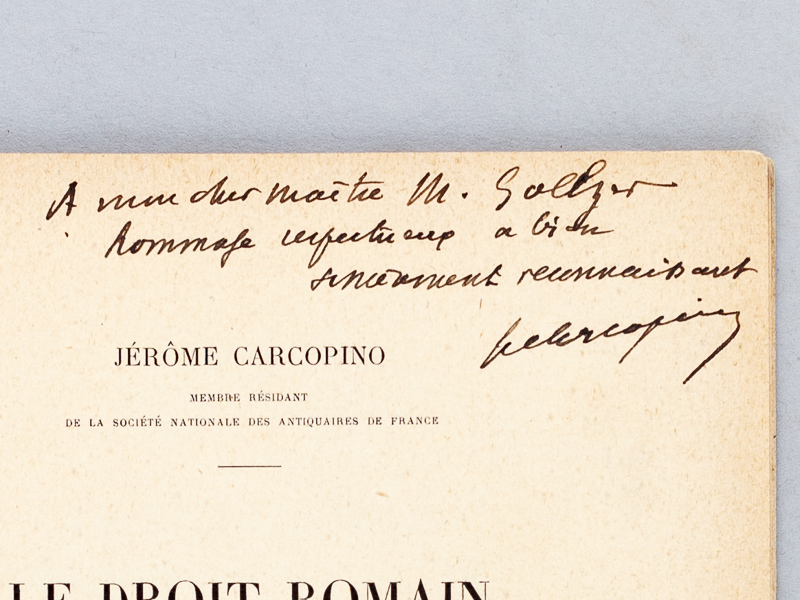 A mon cher maître M. Goelzer
hommage respectueux et bien
sincèrement reconnaissant
JCarcopino
JÉRÔME CARCOPINO
MEMBRE RÉSIDANT
DE LA SOCIÉTÉ NATIONALE DES ANTIQUAIRES DE FRANCE
LE DROIT ROMAIN